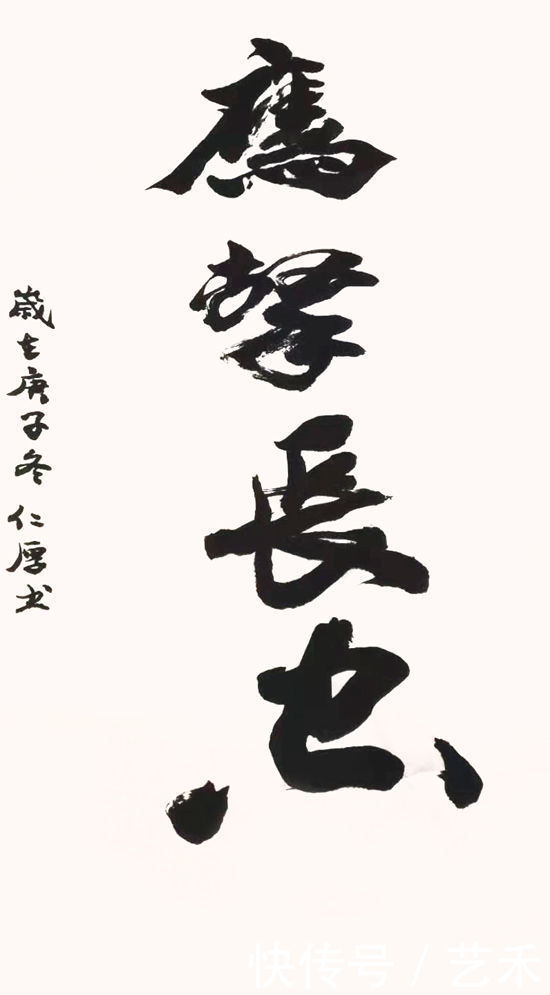 鷹擊長空
歲在庚子冬 仁厚书
快传号 / 艺禾